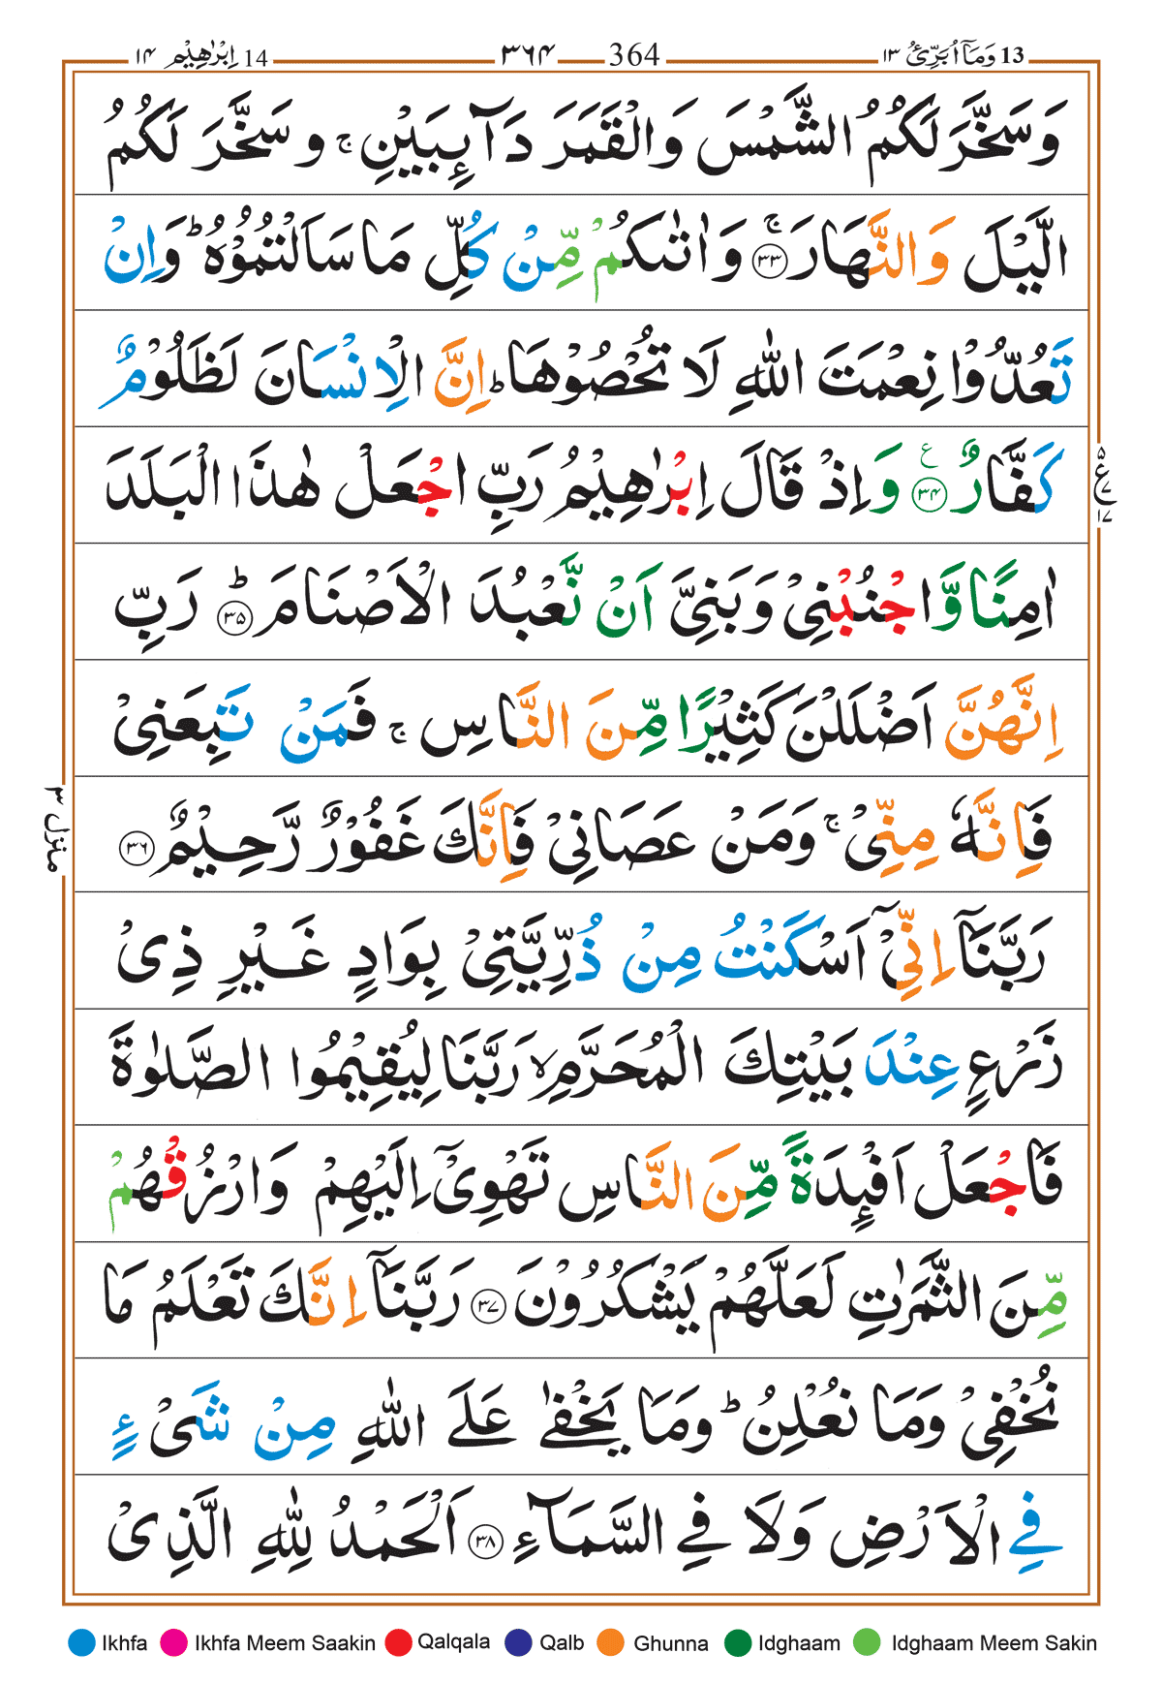 14 اِبْرٰهِيْم ١٤ ٣٦٤ 364 13 وَمَآ اُبَرِّئُ ١٣
وَسَخَّرَ لَكُمُ الشَّمْسَ وَالْقَمَرَ دَآىِٕبَيْنِ ۚ و سَخَّرَ لَكُمُ
الَّيْلَ وَالنَّهَارَ ۚ ﴿٣٣﴾ وَاٰتٰىكُمْ مِّنْ كُلِّ مَا سَاَلْتُمُوْهُ ؕ وَاِنْ
تَعُدُّوْا نِعْمَتَ اللّٰهِ لَا تُحْصُوْهَا ؕ اِنَّ الْاِنْسَانَ لَظَلُوْمٌ
كَفَّارٌ ﴿٣٤﴾ ع وَاِذْ قَالَ اِبْرٰهِيْمُ رَبِّ اجْعَلْ هٰذَا الْبَلَدَ
ع ٥ ٧ ١٧
اٰمِنًا وَّاجْنُبْنِىْ وَبَنِىَّ اَنْ نَّعْبُدَ الْاَصْنَامَ ؕ ﴿٣٥﴾ رَبِّ
اِنَّهُنَّ اَضْلَلْنَ كَثِيْرًا مِّنَ النَّاسِ ۚ فَمَنْ تَبِعَنِىْ
منزل ٣
فَاِنَّهٗ مِنِّىْ ۚ وَمَنْ عَصَانِىْ فَاِنَّكَ غَفُوْرٌ رَّحِيْمٌ ﴿٣٦﴾
رَبَّنَآ اِنِّىْۤ اَسْكَنْتُ مِنْ ذُرِّيَّتِىْ بِوَادٍ غَيْرِ ذِىْ
زَرْعٍ عِنْدَ بَيْتِكَ الْمُحَرَّمِ ۙ رَبَّنَا لِيُقِيْمُوا الصَّلٰوةَ
فَاجْعَلْ اَفْىِٕدَةً مِّنَ النَّاسِ تَهْوِىْۤ اِلَيْهِمْ وَارْزُقْهُمْ
مِّنَ الثَّمَرٰتِ لَعَلَّهُمْ يَشْكُرُوْنَ ﴿٣٧﴾ رَبَّنَآ اِنَّكَ تَعْلَمُ مَا
نُخْفِىْ وَمَا نُعْلِنُ ؕ وَمَا يَخْفٰى عَلَى اللّٰهِ مِنْ شَىْءٍ
فِى الْاَرْضِ وَلَا فِى السَّمَآءِ ﴿٣٨﴾ اَلْحَمْدُ لِلّٰهِ الَّذِىْ
Ikhfa Ikhfa Meem Saakin Qalqala Qalb Ghunna Idghaam Idghaam Meem Sakin